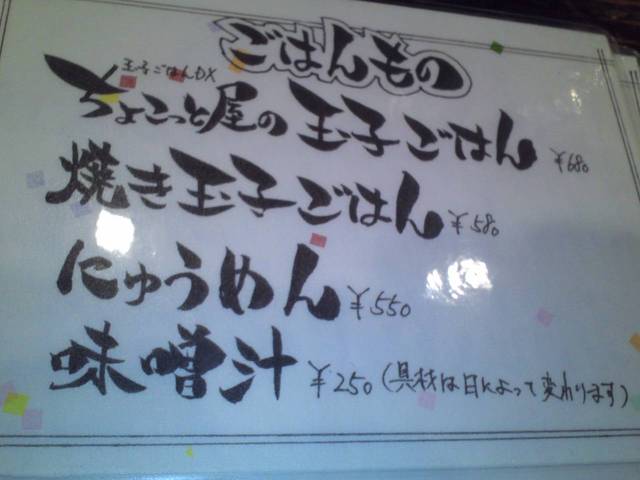 ごはんもの
玉子ごはんDX
ちょこっと屋の玉子ごはん ¥680
焼き玉子ごはん ¥580
にゅうめん ¥550
味噌汁 ¥250（具材は日によって変わります）